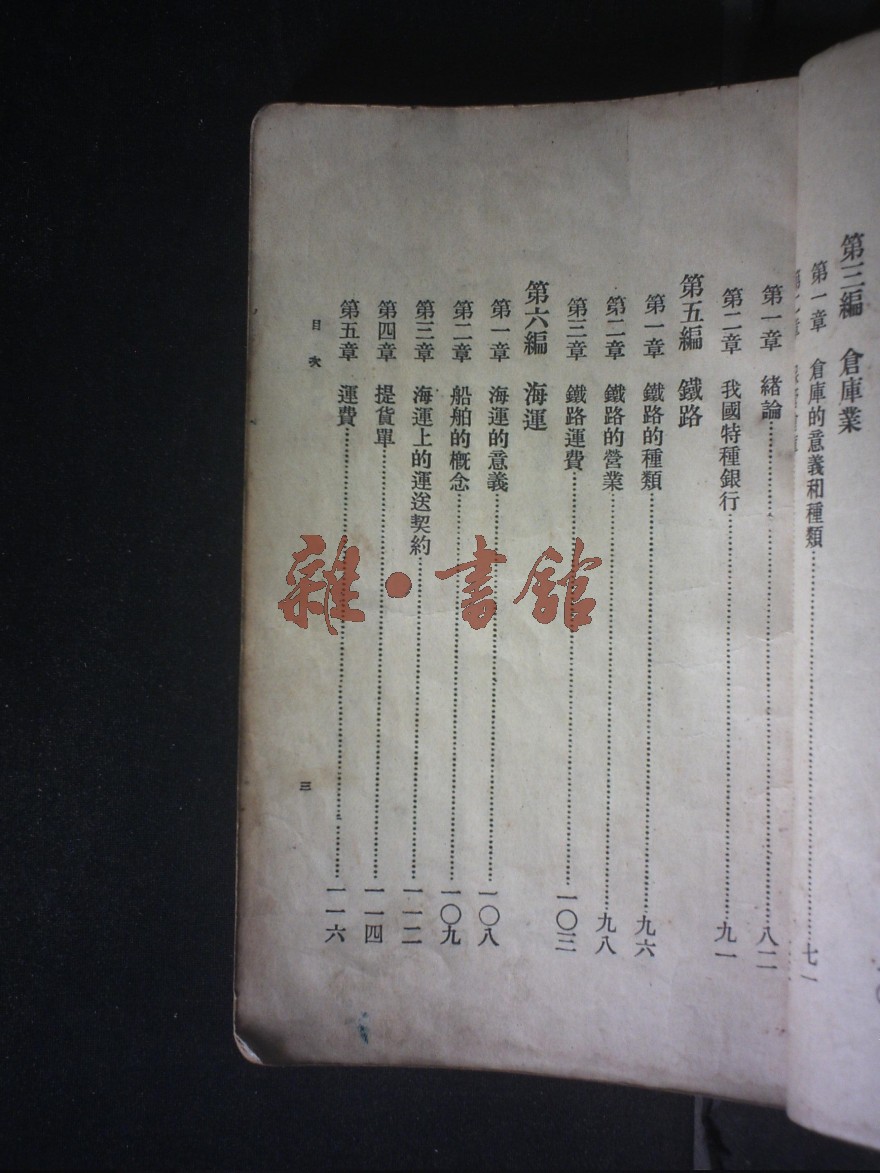 第三編　倉庫業
第一章　倉庫的意義和種類……七一
第一章　緒論……八二
第二章　我國特種銀行……九一
第五編　鐵路
第一章　鐵路的種類……九六
第二章　鐵路的營業……九八
第三章　鐵路運費……一〇三
第六編　海運
第一章　海運的意義……一〇八
第二章　船舶的概念……一〇九
第三章　海運上的運送契約……一一二
第四章　提貨單……一一四
第五章　運費……一一六
目次
三
雜·書館